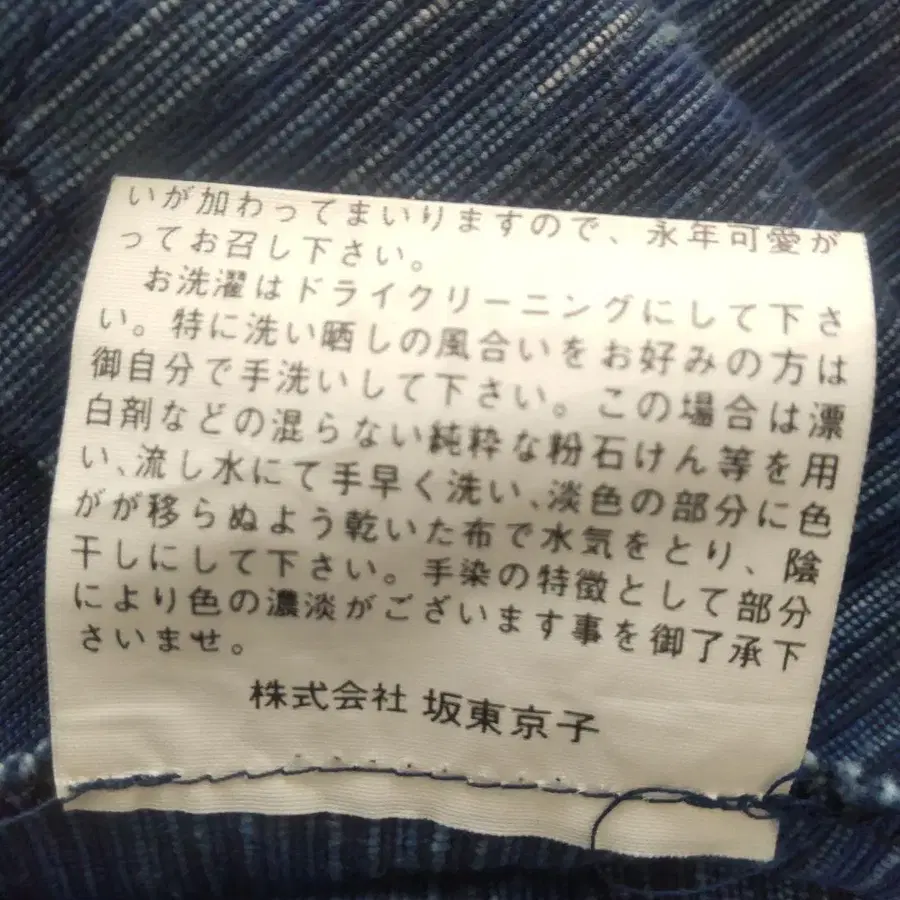 いが加わってまいりますので、永年可愛が
ってお召し下さい。
お洗濯はドライクリーニングにして下さ
い。特に洗い晒しの風合いをお好みの方は
御自分で手洗いして下さい。この場合は漂
白剤などの混らない純粋な粉石けん等を用
い、流し水にて手早く洗い、淡色の部分に色
がが移らぬよう乾いた布で水気をとり、陰
干しにして下さい。手染の特徴として部分
により色の濃淡がございます事を御了承下
さいませ。
株式会社 坂東京子